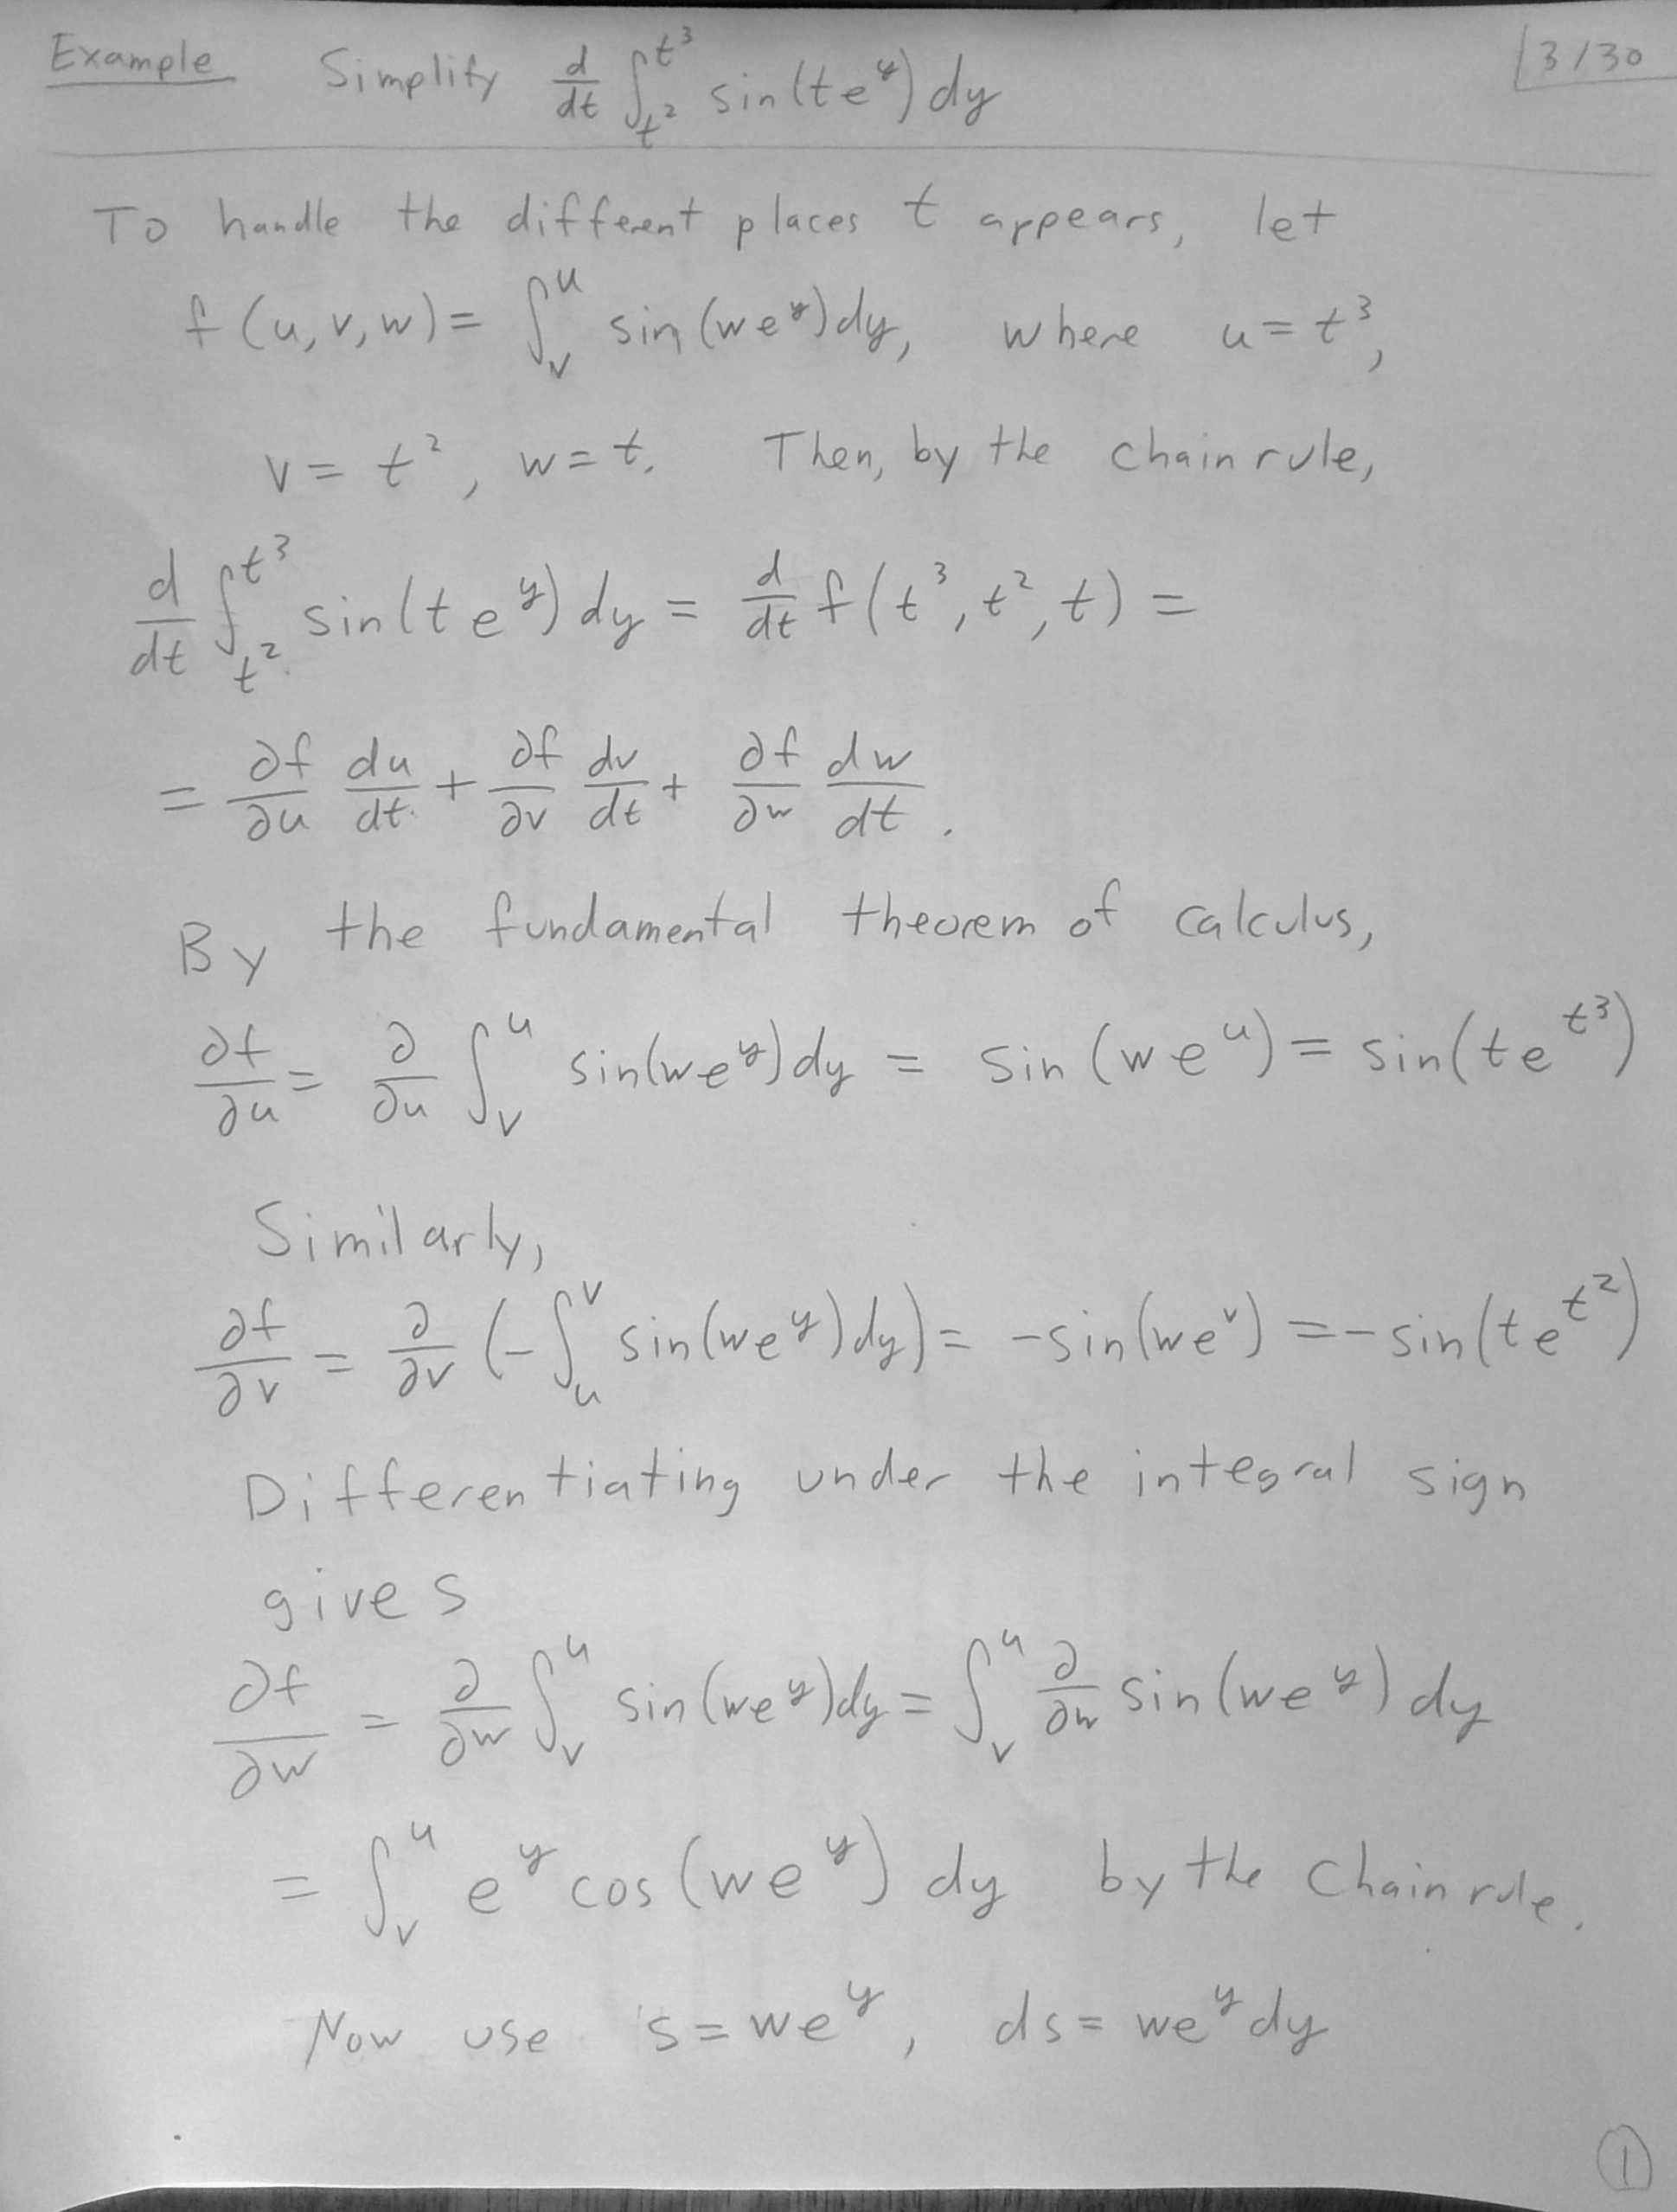 Example Simplify d/dt ∫_{t²}^{t³} sin(te^y) dy 3/30
To handle the different places t appears, let
f(u,v,w) = ∫_v^u sin(we^y)dy, where u = t³,
v = t², w = t. Then, by the chain rule,
d/dt ∫_{t²}^{t³} sin(te^y) dy = d/dt f(t³, t², t) =
= ∂f/∂u du/dt + ∂f/∂v dv/dt + ∂f/∂w dw/dt.
By the fundamental theorem of calculus,
∂f/∂u = ∂/∂u ∫_v^u sin(we^y)dy = sin(we^u) = sin(te^{t³})
Similarly,
∂f/∂v = ∂/∂v (-∫_u^v sin(we^y)dy) = -sin(we^v) = -sin(te^{t²})
Differentiating under the integral sign
gives
∂f/∂w = ∂/∂w ∫_v^u sin(we^y)dy = ∫_v^u ∂/∂w sin(we^y) dy
= ∫_v^u e^y cos(we^y) dy by the chain rule.
Now use s = we^y, ds = we^y dy
1